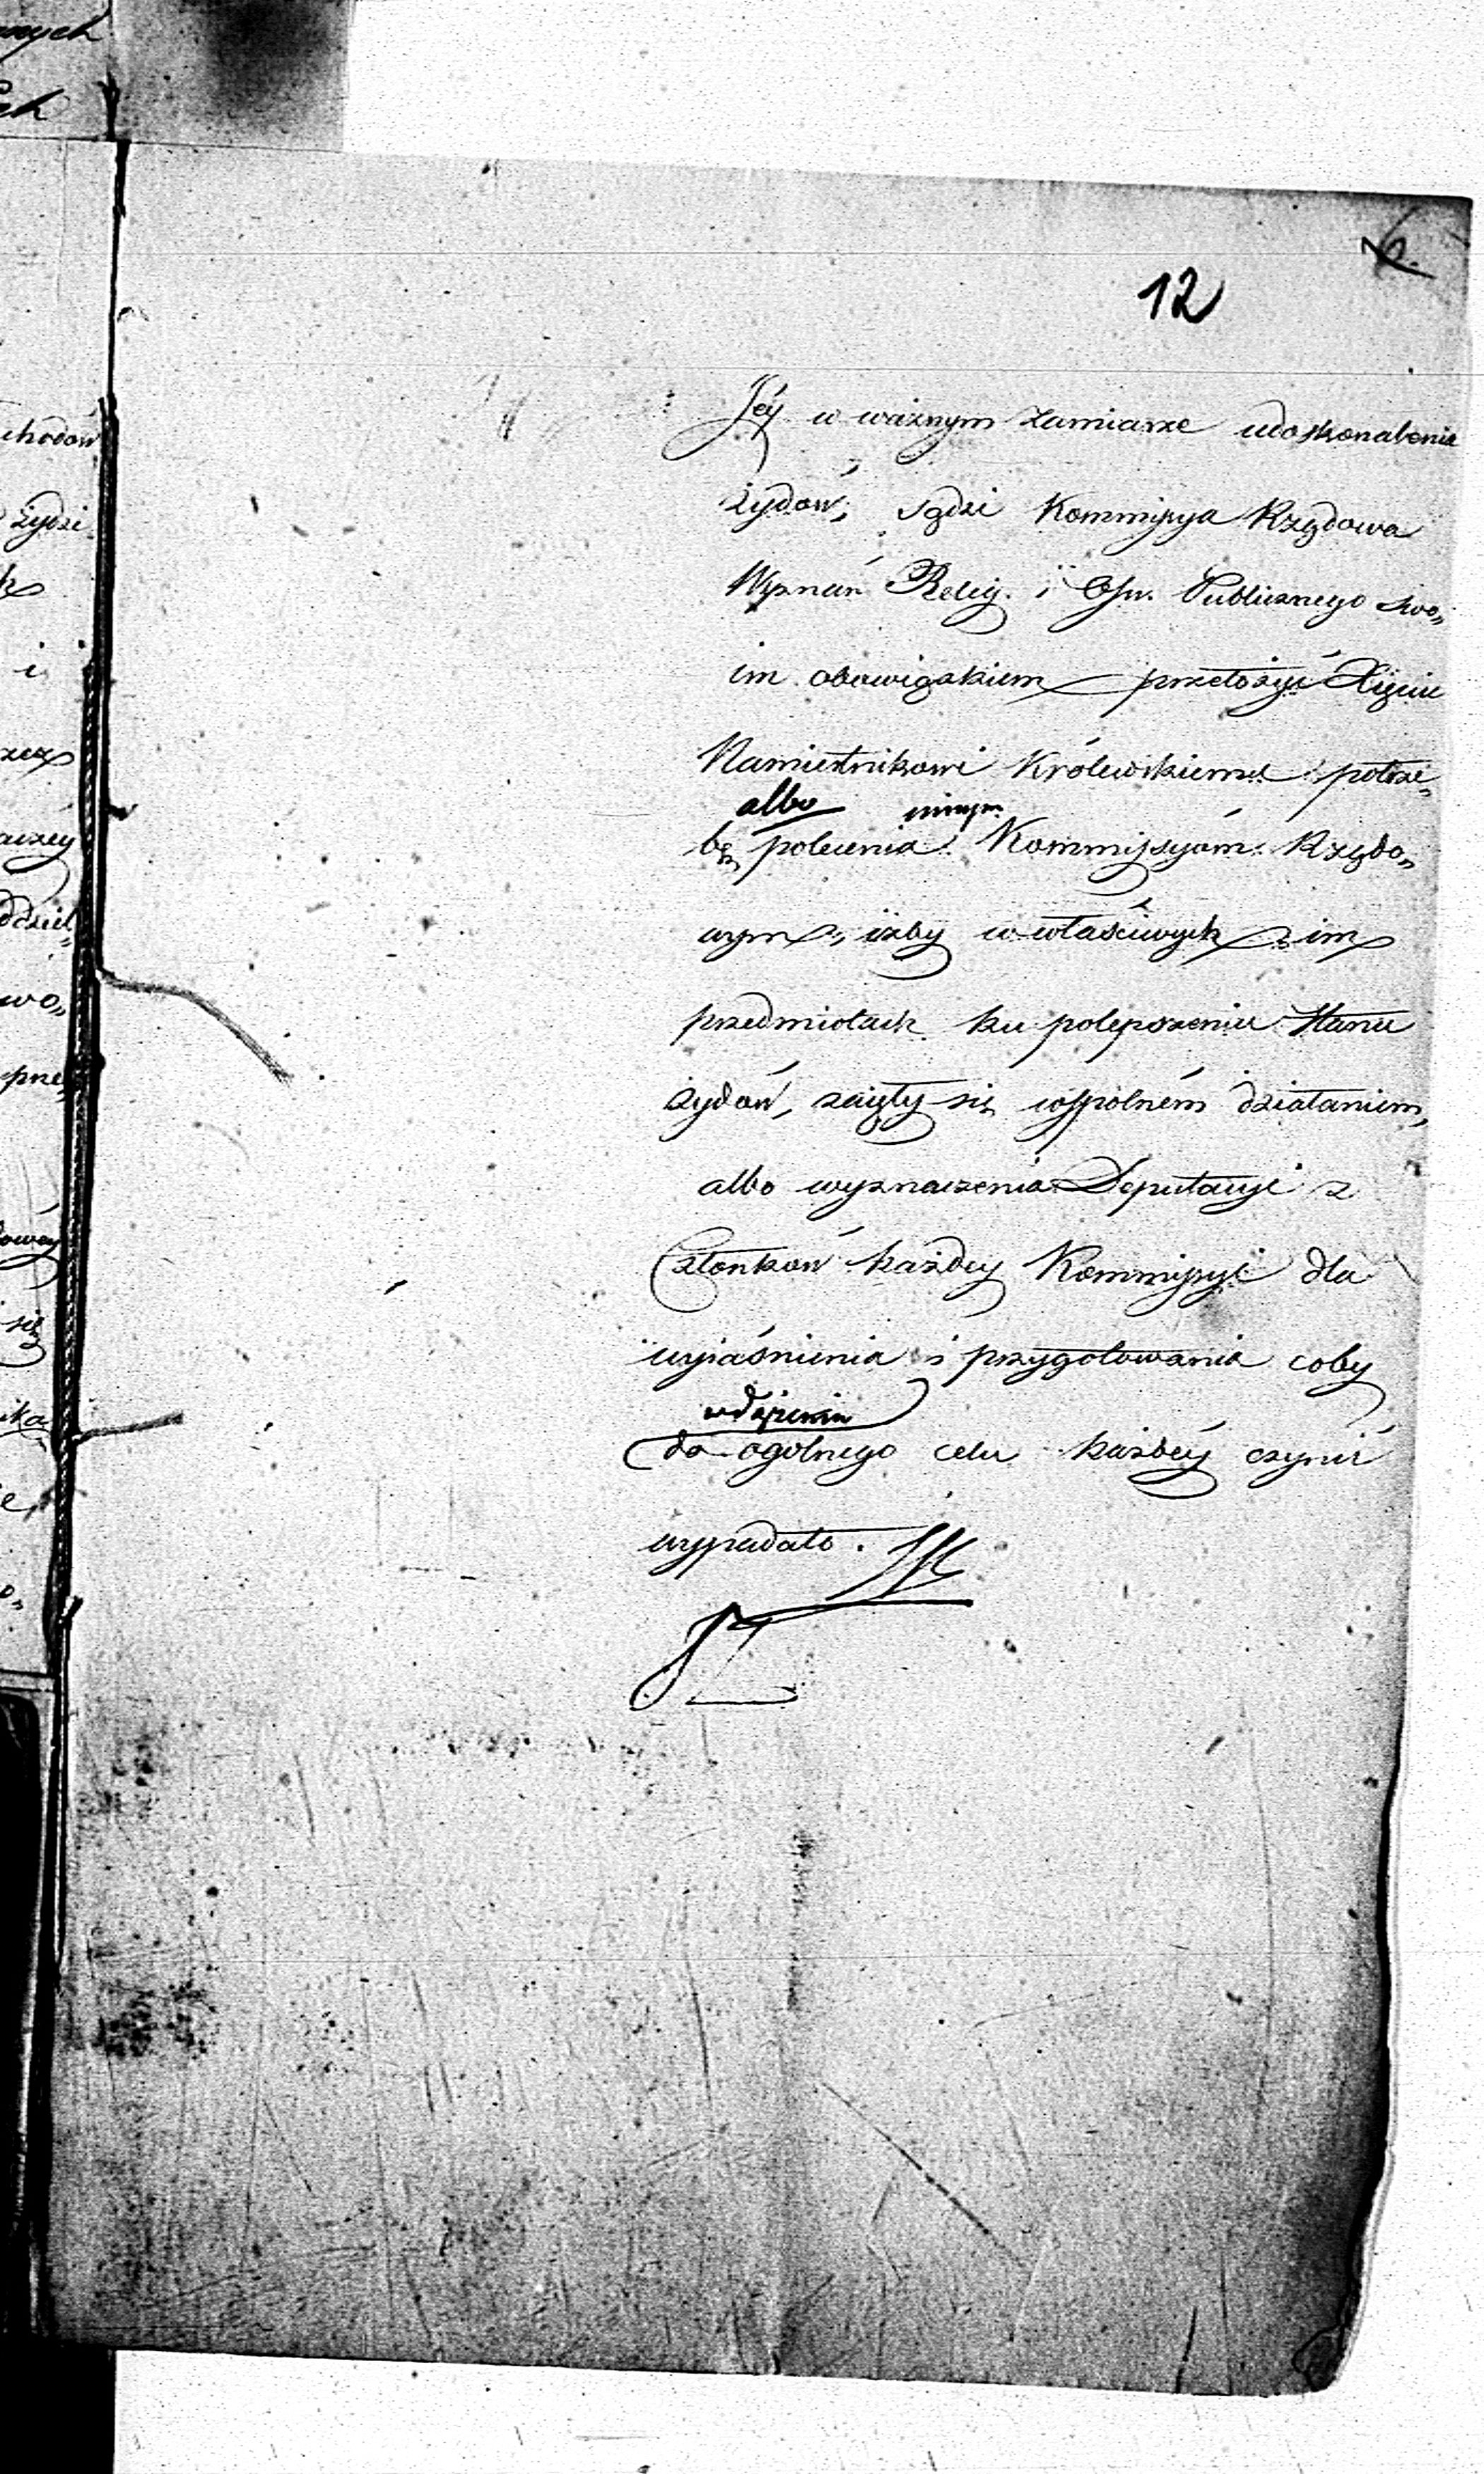 12
Jéy w ważnym zamiarze udoskonalenia
żydów, sądzi Kommissya Rządowa
Wyznań Relig. i Ośw. Publicznego swo„
im obowiązkiem przełożyć Xięciu
Namiestnikowi Królewskiemu potrze„
albo innym
bę polecenia Kommissyóm Rządo„
wym, iżby w właściwych im
przedmiotach ku polepszeniu stanu
żydów, zaięły się wspólném działaniem,
albo wyznaczenia Deputacyi z
Członków każdey Kommissyi dla
wyiaśnienia i przygotowania coby
w dążeniu
do ogólnego celu każdéy czynić
wypadało.